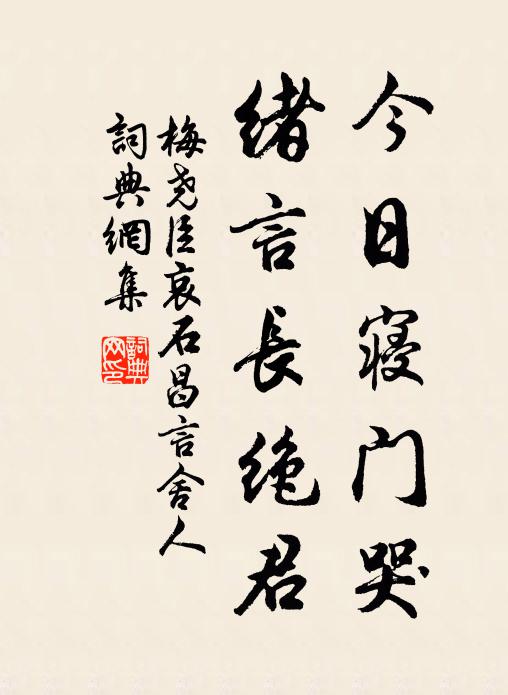 今日寝门哭
绪言長绝君
梅尧臣哀石昌言舍人
詞典網集
詞典网印